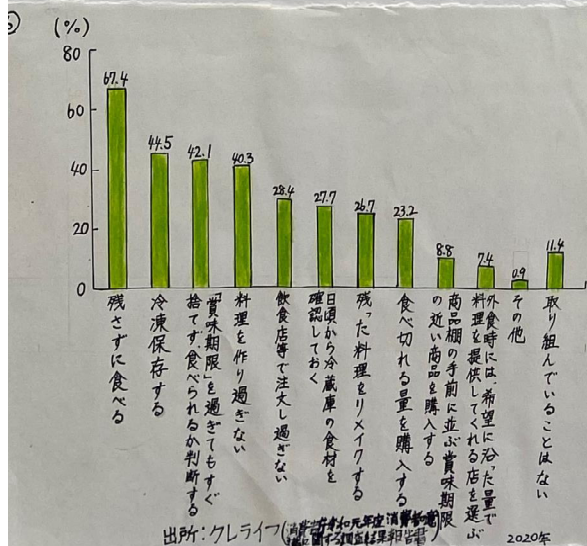 (%)
80
60
40
20
0
67.4
44.5
42.1
40.3
28.4
27.7
26.7
23.2
8.8
7.4
0.9
11.4
残さずに食べる
冷凍保存する
「賞味期限」を過ぎてもすぐ
捨てず、食べられるか判断する
料理を作り過ぎない
飲食店等で注文し過ぎない
日頃から冷蔵庫の食材を
確認しておく
残った料理をリメイクする
食べ切れる量を購入する
商品棚の手前に並ぶ賞味期限
の近い商品を購入する
外食時には、希望に沿った量で
料理を提供してくれる店を選ぶ
その他
取り組んでいることはない
出所:クレライフ(消費
調査結果報告書
2020年